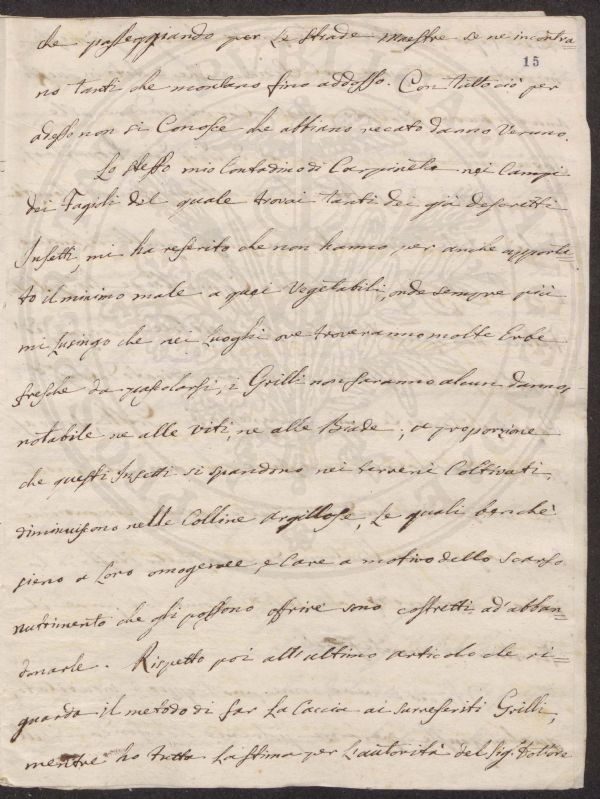 che passeggiando per le strade maestre se ne incontra=
15
no tanti che montano fino addosso. Con tutto ciò per
adesso non si Conosce che abbiano recato danno Veruno.
Lo stesso mio Contadino di Carpineta nei Campi
dei Fagioli del quale trovai tanti dei già descritti
Insetti, mi ha referito che non hanno per anche apporta=
to il minimo male a quei Vegetabili, onde sempre più
mi lusingo che nei Luoghi ove troveranno molte Erbe
fresche da pascolarsi, i Grilli non faranno alcun danno
notabile ne alle viti, ne alle Biade; a proporzione
che questi Insetti si spandono nei terreni Coltivati,
diminuiscono nelle Colline argillose, Le quali benchè
sieno a Loro omogenee, e Care a motivo dello scarso
nutrimento che gli possono offrire sono costretti ad abban=
donarle. Rispetto poi all'ultimo articolo che ri=
guarda il metodo di far La Caccia ai surreferiti Grilli,
mentre ho tutta La stima per L'autorità del Sig. Dottore